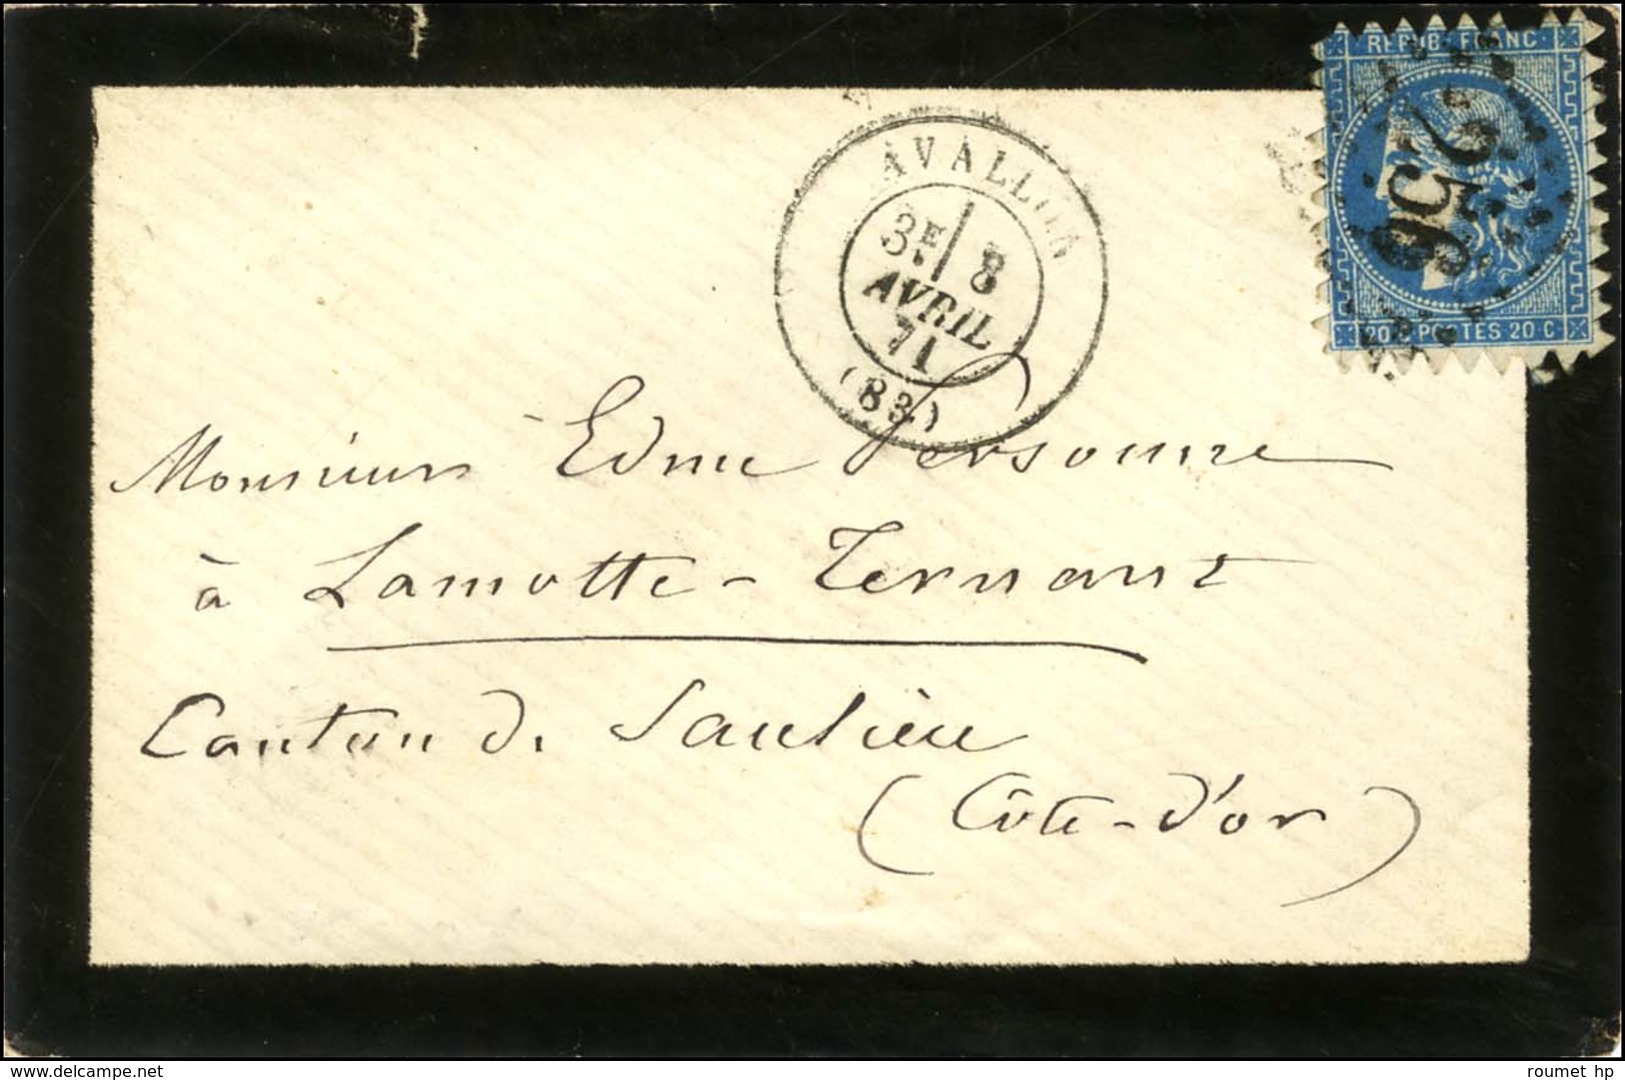 REPUB. FRANC.
256
20 C POSTES 20 C
AVALLON
3E 8
AVRIL
71
(83)
Monsieur Edme Personne
à Lamotte-Ternant
Canton de Saulieu
(Côte-d'or)
delcampe.net
roumet hp